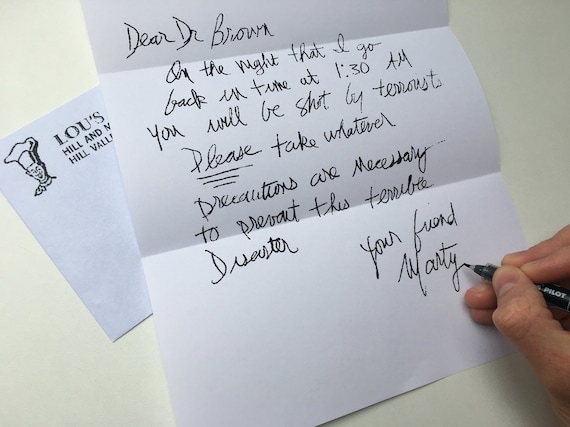 Dear Dr Brown
On the night that I go
back in time at 1:30 AM
you will be shot by terrorists
Please take whatever
Precautions are necessary
to prevent this terrible
Disaster
Your friend
Marty
LOU'S
HILL AND
HILL VALL
PILOT